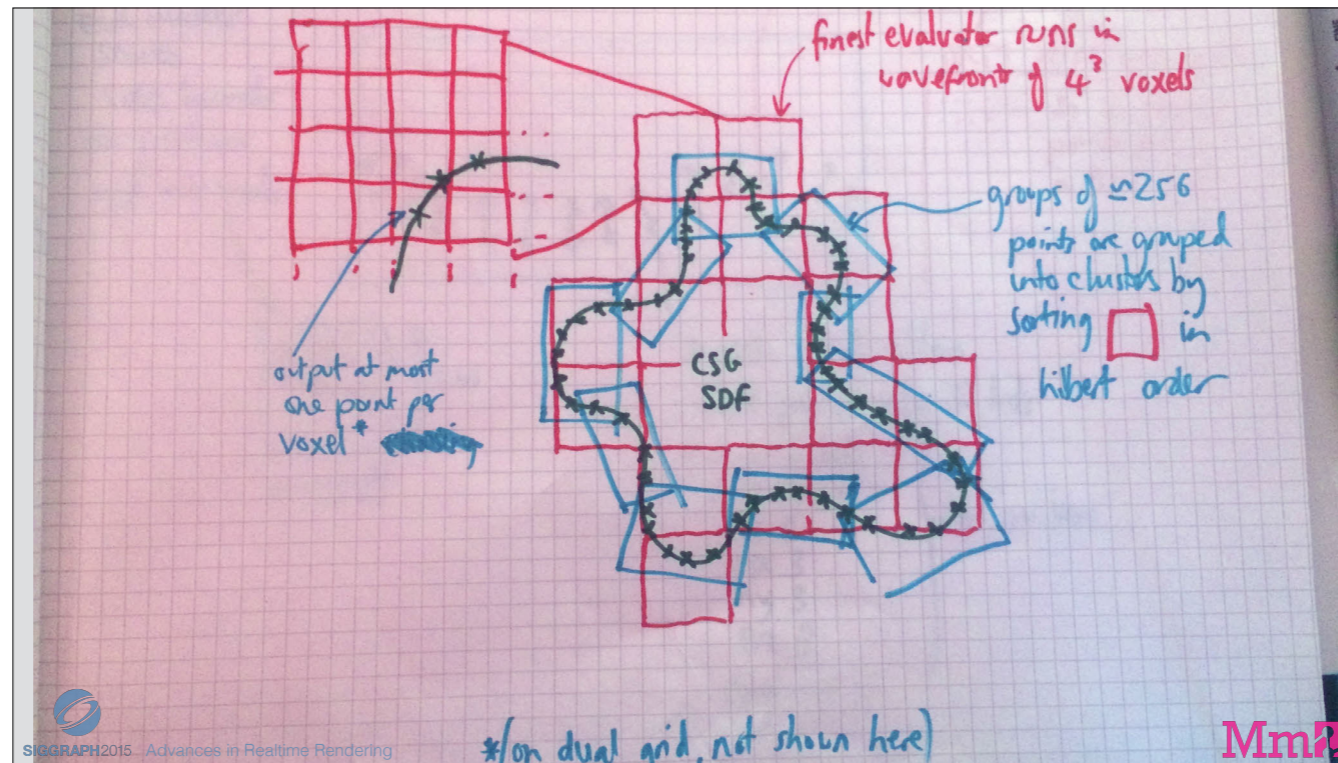 finest evaluator runs in
wavefronts of 4³ voxels
groups of ≃256
points are grouped
into clusters by
sorting in
hilbert order
CSG
SDF
output at most
one point per
voxel*
*(on dual grid, not shown here)
SIGGRAPH2015 Advances in Realtime Rendering
Mm